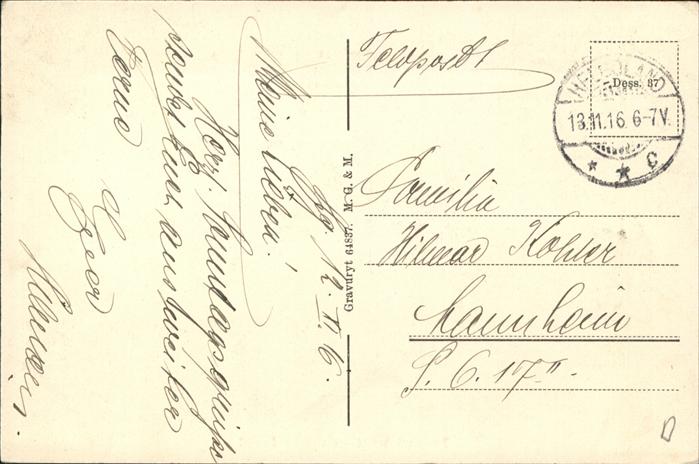 Feldpost
HELGOLAND
Dess. 87
13.11.16. 6-7V.
* * C
Familie
Hilmar Kohler
Mannheim
S. 6. 17 II
Gravuryt 64837. M. G. & M.
12. XI. 16.
Meine Lieben!
Herz. Sonntagsgrüße
sendet Euch aus weiter
Ferne
Euer